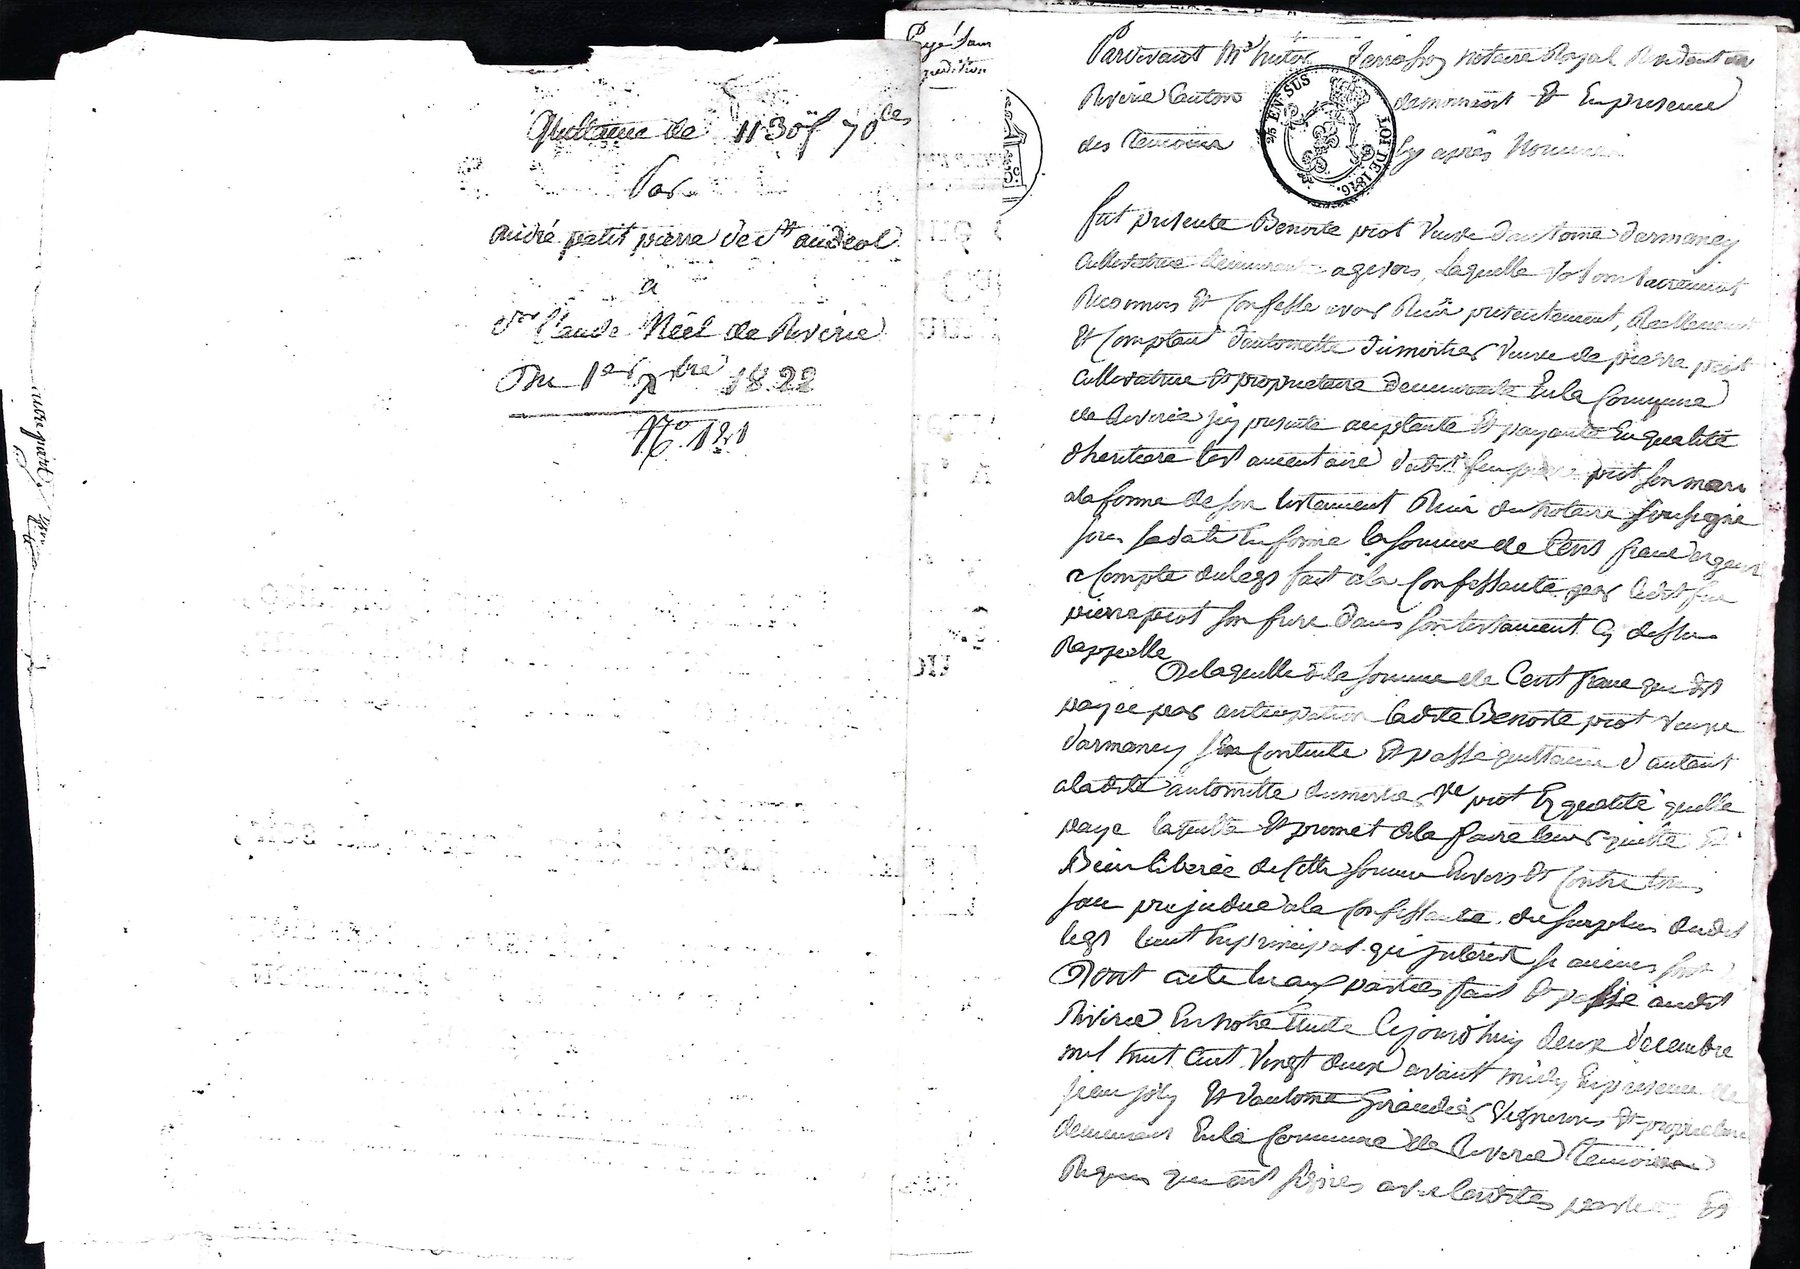 Quittance de 1130f 70ces
Par
andré petit pierre de St andeol
a
Sr Claude Néel de Riverie
Du 1er xbre 1822
No. 121
Payé Sam
Pardevant Me hutor notaire Royal Residant au
Riverie Canton demornant Et En presence
des Temoins Cy après Nommés
25 EN SUS
LOI DE 1816.
fut presente Benoite piot Veuve d'antoine darmancy
Cultivatrice demeurant agivors, Laquelle Volontairement
Reconnois Et Confesse avoir Reçu presentement, Reellement
Et Comptant d'antoinette dumortier Veuve de pierre piot
Cultivatrice Et proprietaire demeurante En la Commune
de Riverie icy presente acceptante Et payante En qualité
d'heritiere testamentaire dudit feu pierre piot son mari
a la forme de son testament Reçu du notaire soussigné
sous sa date En forme la somme de Cent franc argent
a Compte du legs fait a la Confessante par ledit feu
pierre piot son frere dans son testament Cy dessus
Rappellé
De laquelle dite somme de Cent franc que dit
payée par anticipation ladite Benoite piot veuve
darmancy s'en Contente Et passe quittance d'autant
a ladite antoinette dumortier Ve piot En qualité quelle
paye laquitte Et promet de la faire tenir quitte Et
Bien liberée de cette somme Envers Et Contre tous
sans prejudice a la Confessante du surplus dudit
legs tant En principal qu'interest si aucuns sont
Dont acte lu aux parties fait Et passé audit
Riverie En notre Etude Cejourd'huy deux decembre
mil huit Cent Vingt deux avant midy En presence de
jean joly Et d'antoine Giraudier Vignerons Et proprietaires
demeurant En la Commune de Riverie temoins
Requis qui ont signés avec lesdites parties Et